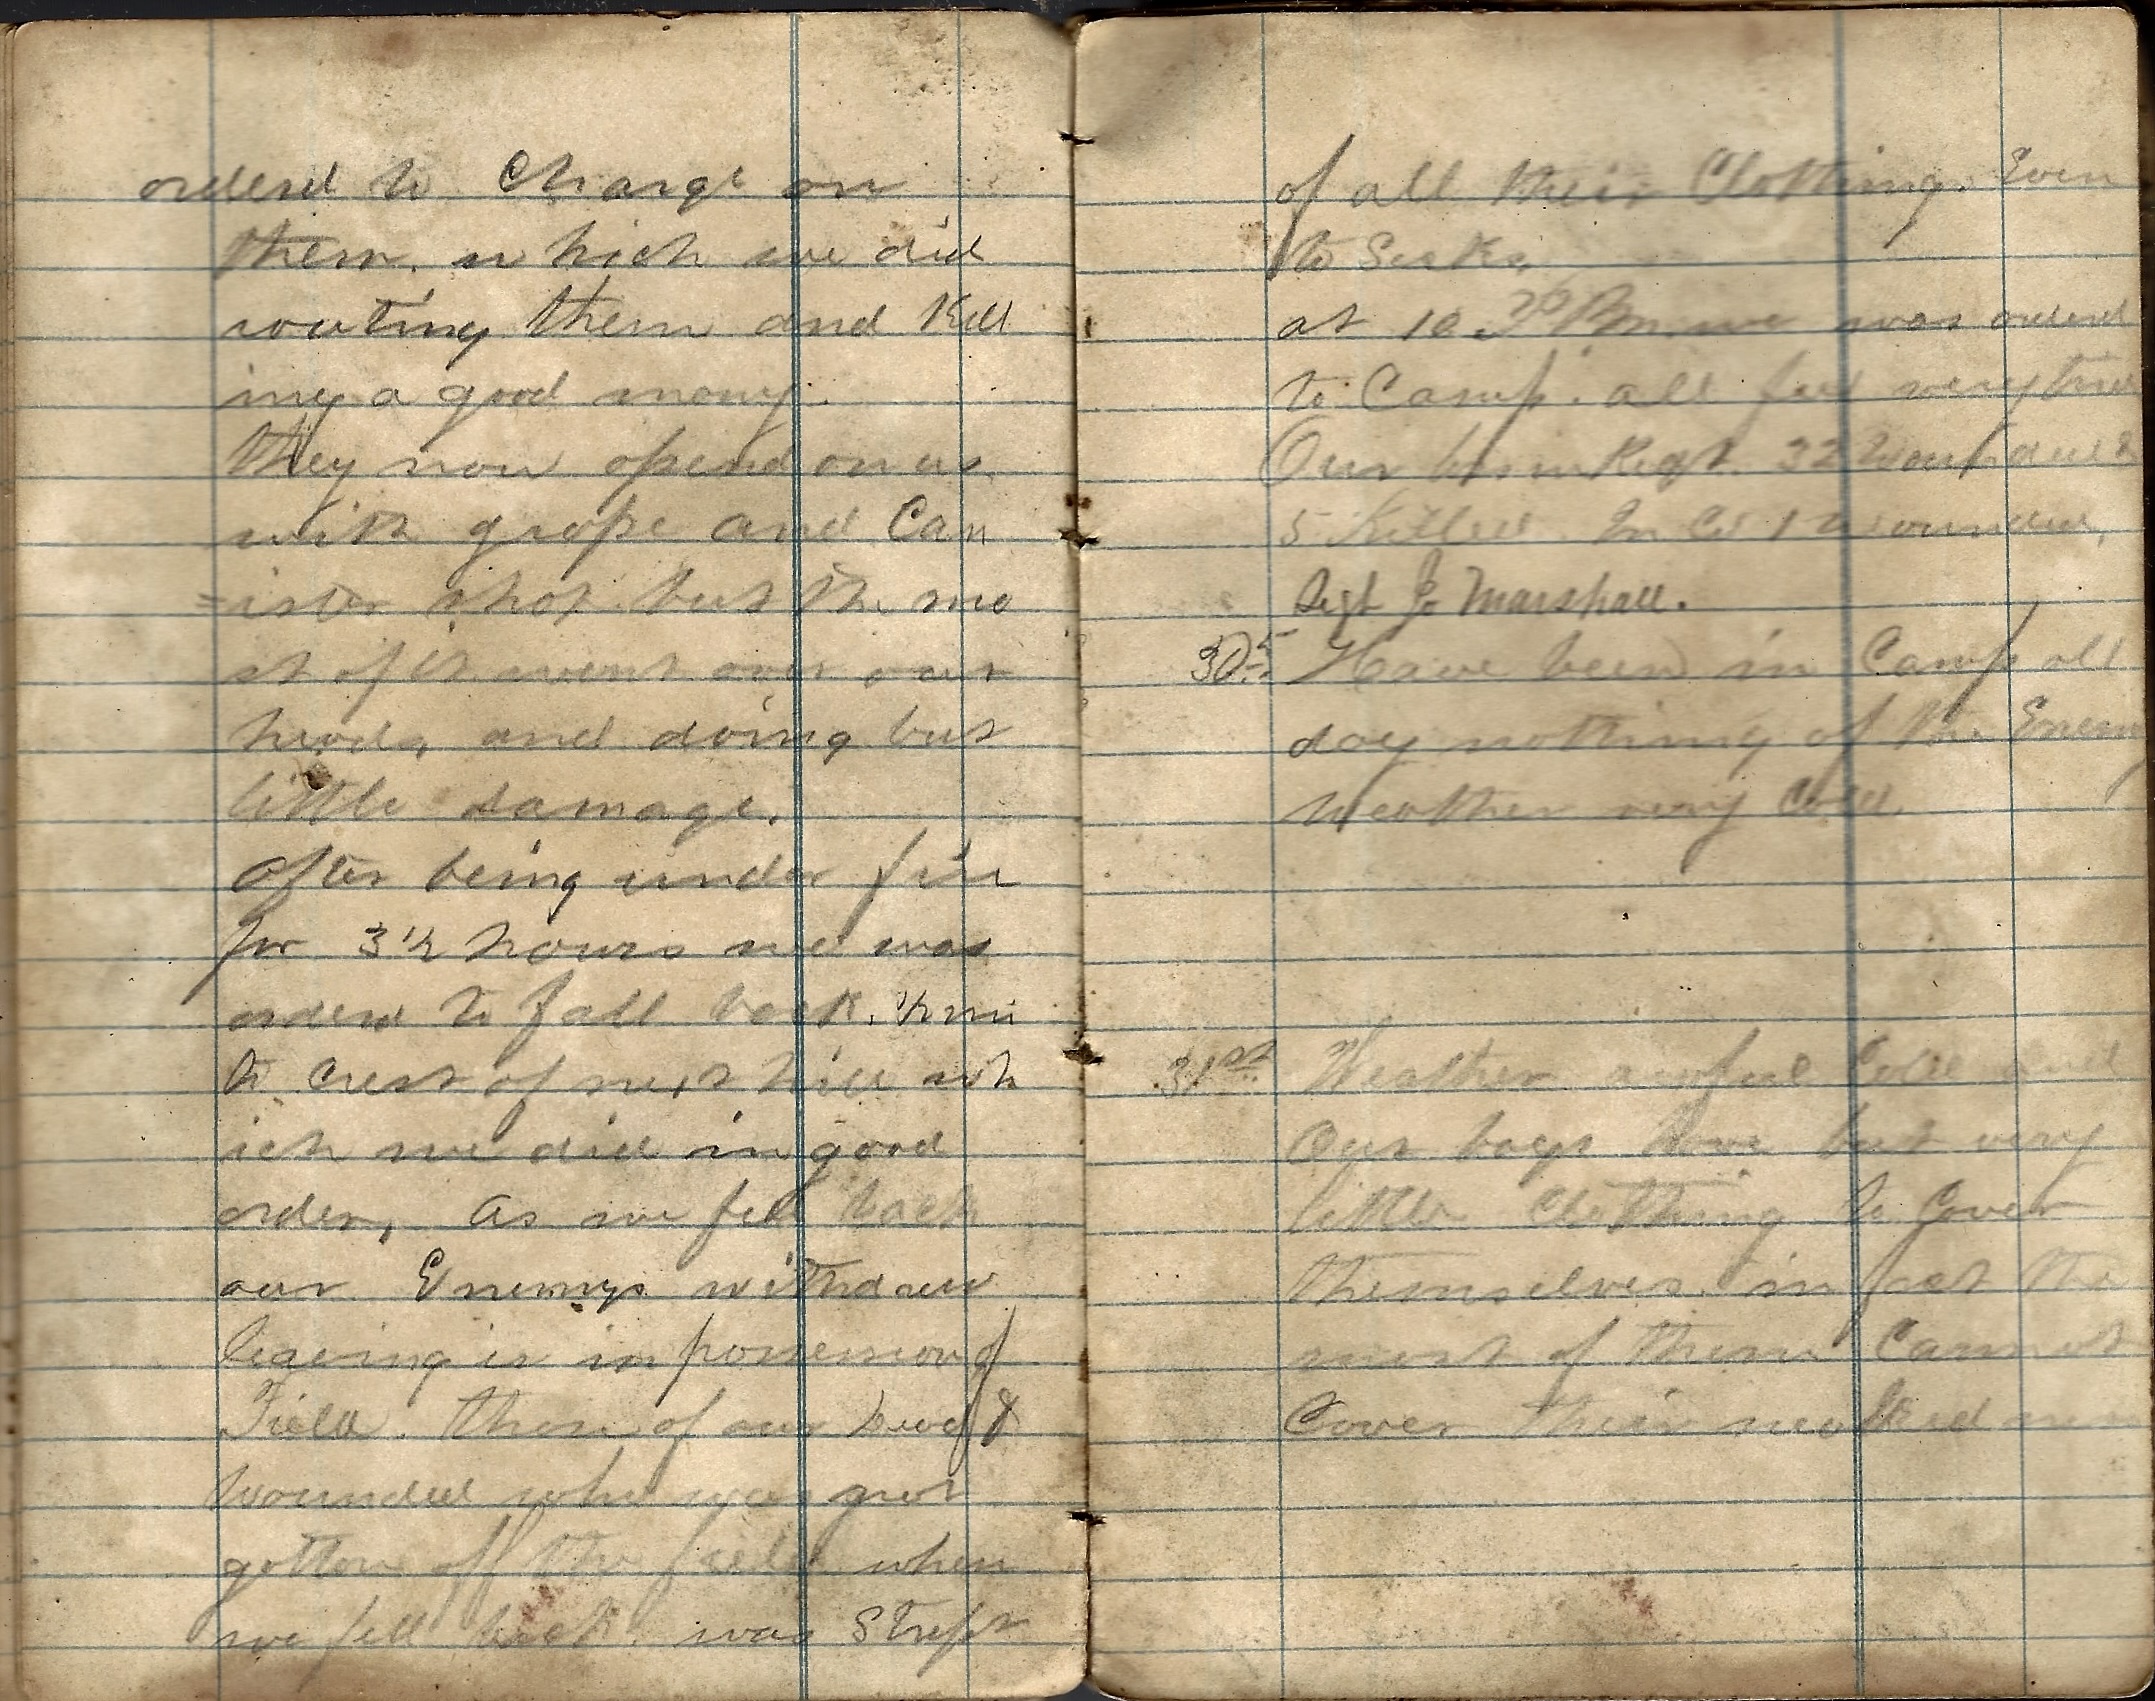 orderd to Charge on
them. which we did
routing them and Kill
ing a good many.
they now opend on us
with grape and Can
=ister shot. but the mo
st of it went over our
heads, and doing but
little damage.
After being under fire
for 3 1/2 hours we was
orderd to fall back.
to Crest of next hill wh
ich we did in good
order, As we fell back
our Enemys withdrew
leaving us in possession of
Field. those of our Dead &
wounded who was not
gotten off the field when
we fell back. was Stript
of all their Clothing. Even
to Socks,
at 10 P.M. we was orderd
to Camp. all feel very tired
Our loss in Regt. 32 Wounded &
5 Killed. In Co 1 Wounded,
Segt Jo Marshall.
30th Have been in Camp all
day nothing of the Enemy
Weather very Cold.
31st Weather awful Cold and
Our boys have but very
little Clothing to Cover
themselves. in fact the
most of them Cannot
Cover their neaked